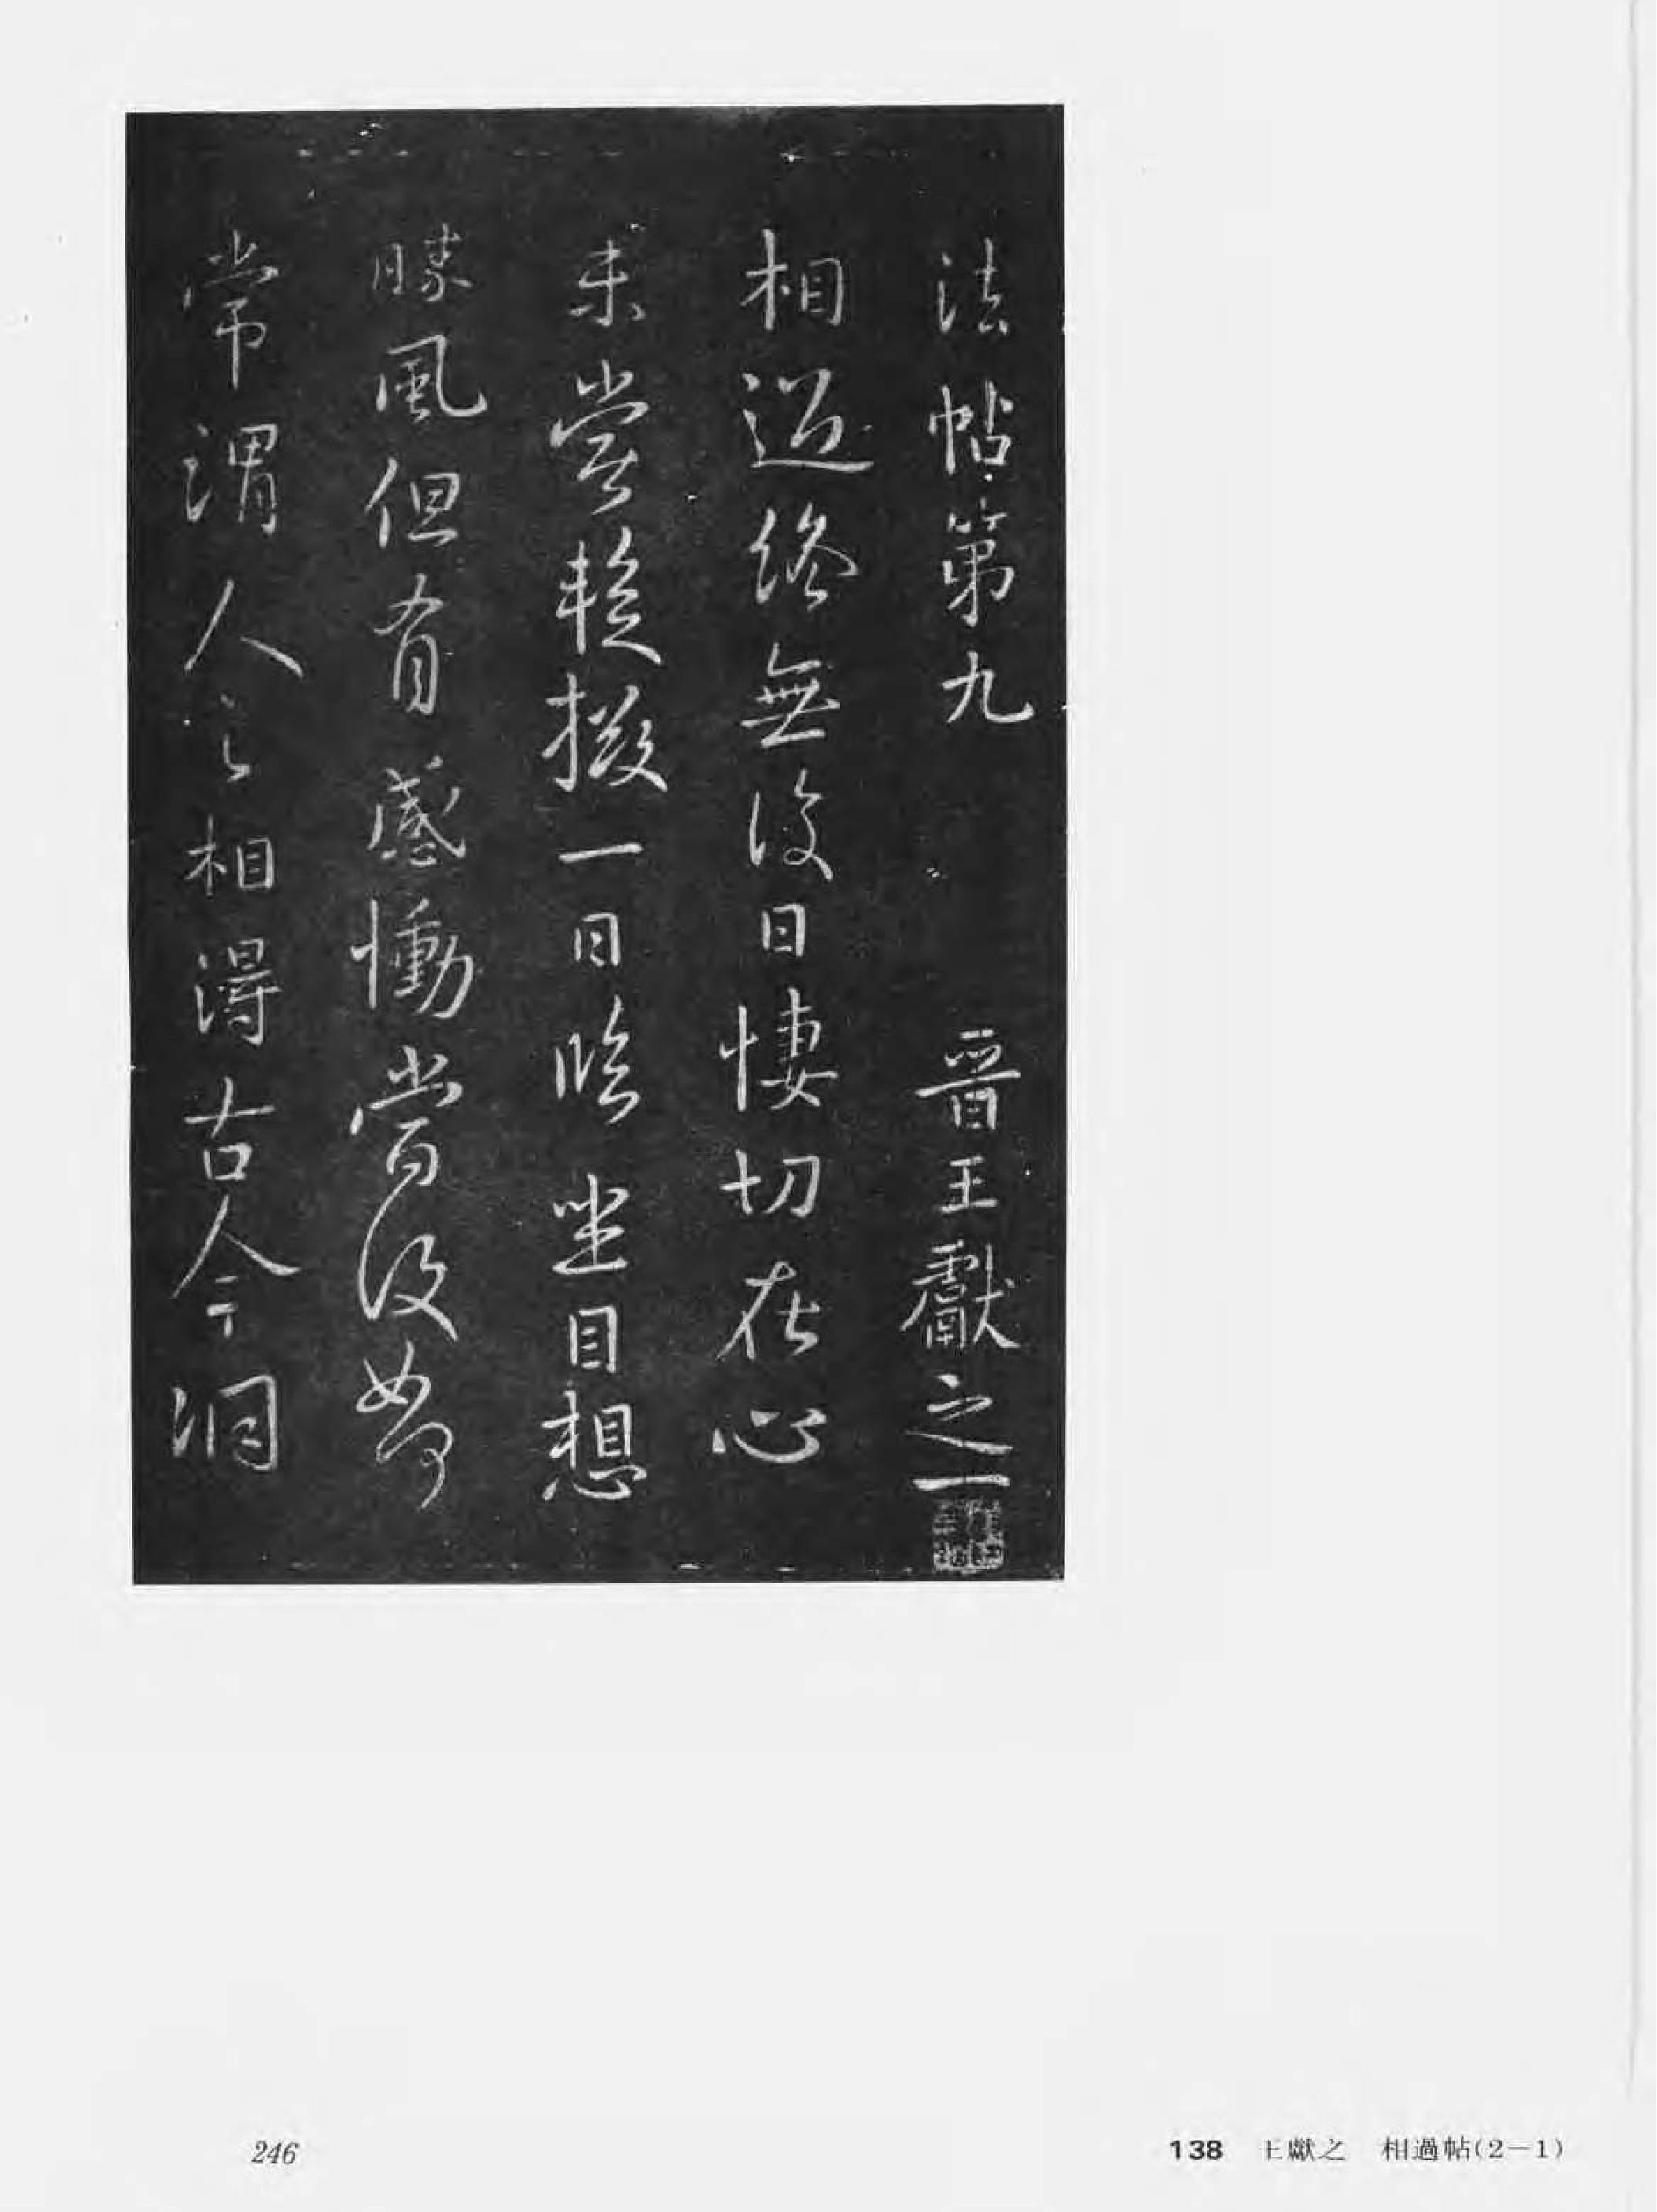 法帖第九 晉王獻之一
相過終無復日悽切在心
未嘗蹔掇一日臨坐目想
勝風但有感慟當復如何
常謂人之相得古今洞
246
138 王獻之 相過帖(2-1)